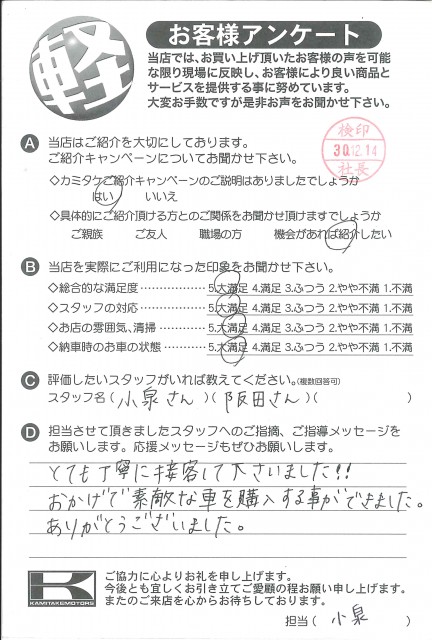 軽
お客様アンケート
当店では、お買い上げ頂いたお客様の声を可能
な限り現場に反映し、お客様により良い商品と
サービスを提供する事に努めています。
大変お手数ですが是非お声をお聞かせ下さい。
検印
30.12.14
社長
A 当店はご紹介を大切にしております。
ご紹介キャンペーンについてお聞かせ下さい。
◇カミタケご紹介キャンペーンのご説明はありましたでしょうか
はい いいえ
◇具体的にご紹介頂ける方とのご関係をお聞かせ頂けますでしょうか
ご親族 ご友人 職場の方 機会があれば紹介したい
B 当店を実際にご利用になった印象をお聞かせ下さい。
◇総合的な満足度‥‥‥‥‥‥ 5.大満足 4.満足 3.ふつう 2.やや不満 1.不満
◇スタッフの対応‥‥‥‥‥‥ 5.大満足 4.満足 3.ふつう 2.やや不満 1.不満
◇お店の雰囲気、清掃‥‥‥‥ 5.大満足 4.満足 3.ふつう 2.やや不満 1.不満
◇納車時のお車の状態‥‥‥‥ 5.大満足 4.満足 3.ふつう 2.やや不満 1.不満
C 評価したいスタッフがいれば教えてください。(複数回答可)
スタッフ名(小泉さん)(阪田さん)( )
D 担当させて頂きましたスタッフへのご指摘、ご指導メッセージを
お願いします。応援メッセージもぜひお願いします。
とても丁寧に接客して下さいました!!
おかげで素敵な車を購入する事ができました。
ありがとうございました。
K
KAMITAKEMOTORS
ご協力に心よりお礼を申し上げます。
今後とも宜しくお引き立てご愛顧の程お願い申し上げます。
またのご来店を心からお待ちしております。
担当(小泉)